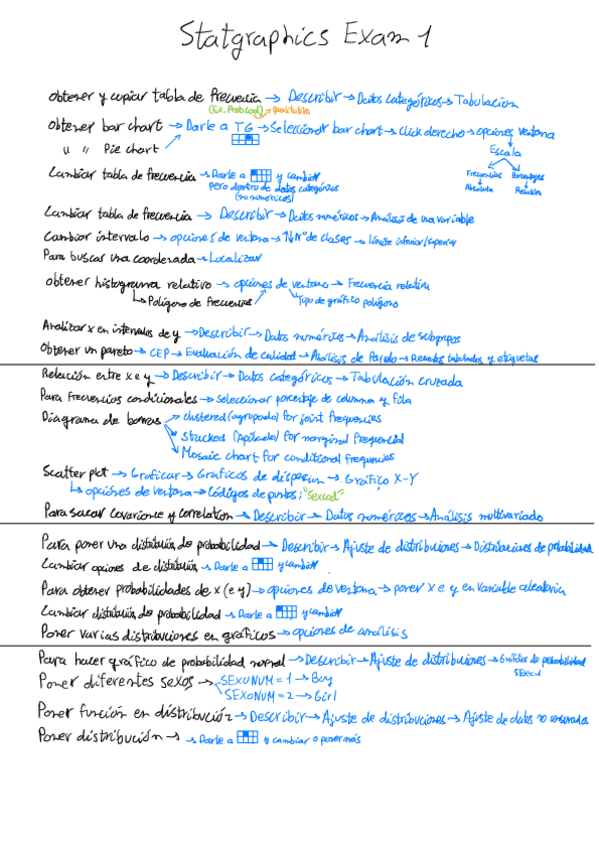 Statgraphics Exam 1
Obtener y copiar tabla de frecuencia → Describir → Datos categóricos → Tabulacion
(Ex. Prob cod) → qualitativa
Obtener bar chart → Darle a TG → Seleccionar bar chart → Click derecho → opciones ventana
" " Pie chart
Escala
Frecuencias Porcentajes
Absoluta Relativa
Cambiar tabla de frecuencia → Darle a y cambiar
pero dentro de datos categóricos
(no numéricos)
Cambiar tabla de frecuencia → Describir → Datos numéricos → Análisis de una variable
Cambiar intervalo → opciones de ventana → ↑↓ Nº de clases → límite inferior/superior
Para buscar una coordenada → Localizar
Obtener histograma relativo → opciones de ventana → Frecuencia relativa
↳ Polígono de frecuencias Tipo de gráfico polígono
Analizar x en intervalos de y → Describir → Datos numéricos → Análisis de subgrupos
Obtener un pareto → CEP → Evaluación de calidad → Análisis de Pareto → Recuentos tabulados y etiquetas
Relación entre x e y → Describir → Datos categóricos → Tabulación cruzada
Para frecuencias condicionales → seleccionar porcentaje de columna y fila
Diagrama de barras → clustered (agrupado) for joint frequencies
→ Stacked (Apilado) for marginal frequencies
→ Mosaic chart for conditional frequencies
Scatter plot → Graficar → Graficos de dispersion → Gráfico X-Y
↳ opciones de ventana → Códigos de puntos; "sexcod"
Para sacar covariance y correlation → Describir → Datos numéricos → Análisis multivariado
Para poner una distribución de probabilidad → Describir → Ajuste de distribuciones → Distribuciones de probabilidad
Cambiar opciones de distribución → Darle a y cambiar
Para obtener probabilidades de x (e y) → opciones de ventana → poner x e y en variable aleatoria
Cambiar distribución de probabilidad → Darle a y cambiar
Poner varias distribuciones en gráficos → opciones de analisis
Para hacer gráfico de probabilidad normal → Describir → Ajuste de distribuciones → Gráficos de probabilidad
Poner diferentes sexos → SEXONUM = 1 → Boy
→ SEXONUM = 2 → Girl
Poner función en distribución → Describir → Ajuste de distribuciones → Ajuste de datos no censurados
Poner distribución → → Darle a y cambiar o poner más